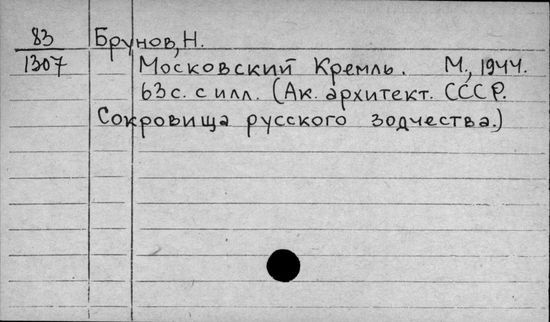 83 Брунов, Н.
1307 Московский Кремль. М., 1944.
63 с. с илл. (Ак. архитект. СССР.
Сокровища русского зодчества.)